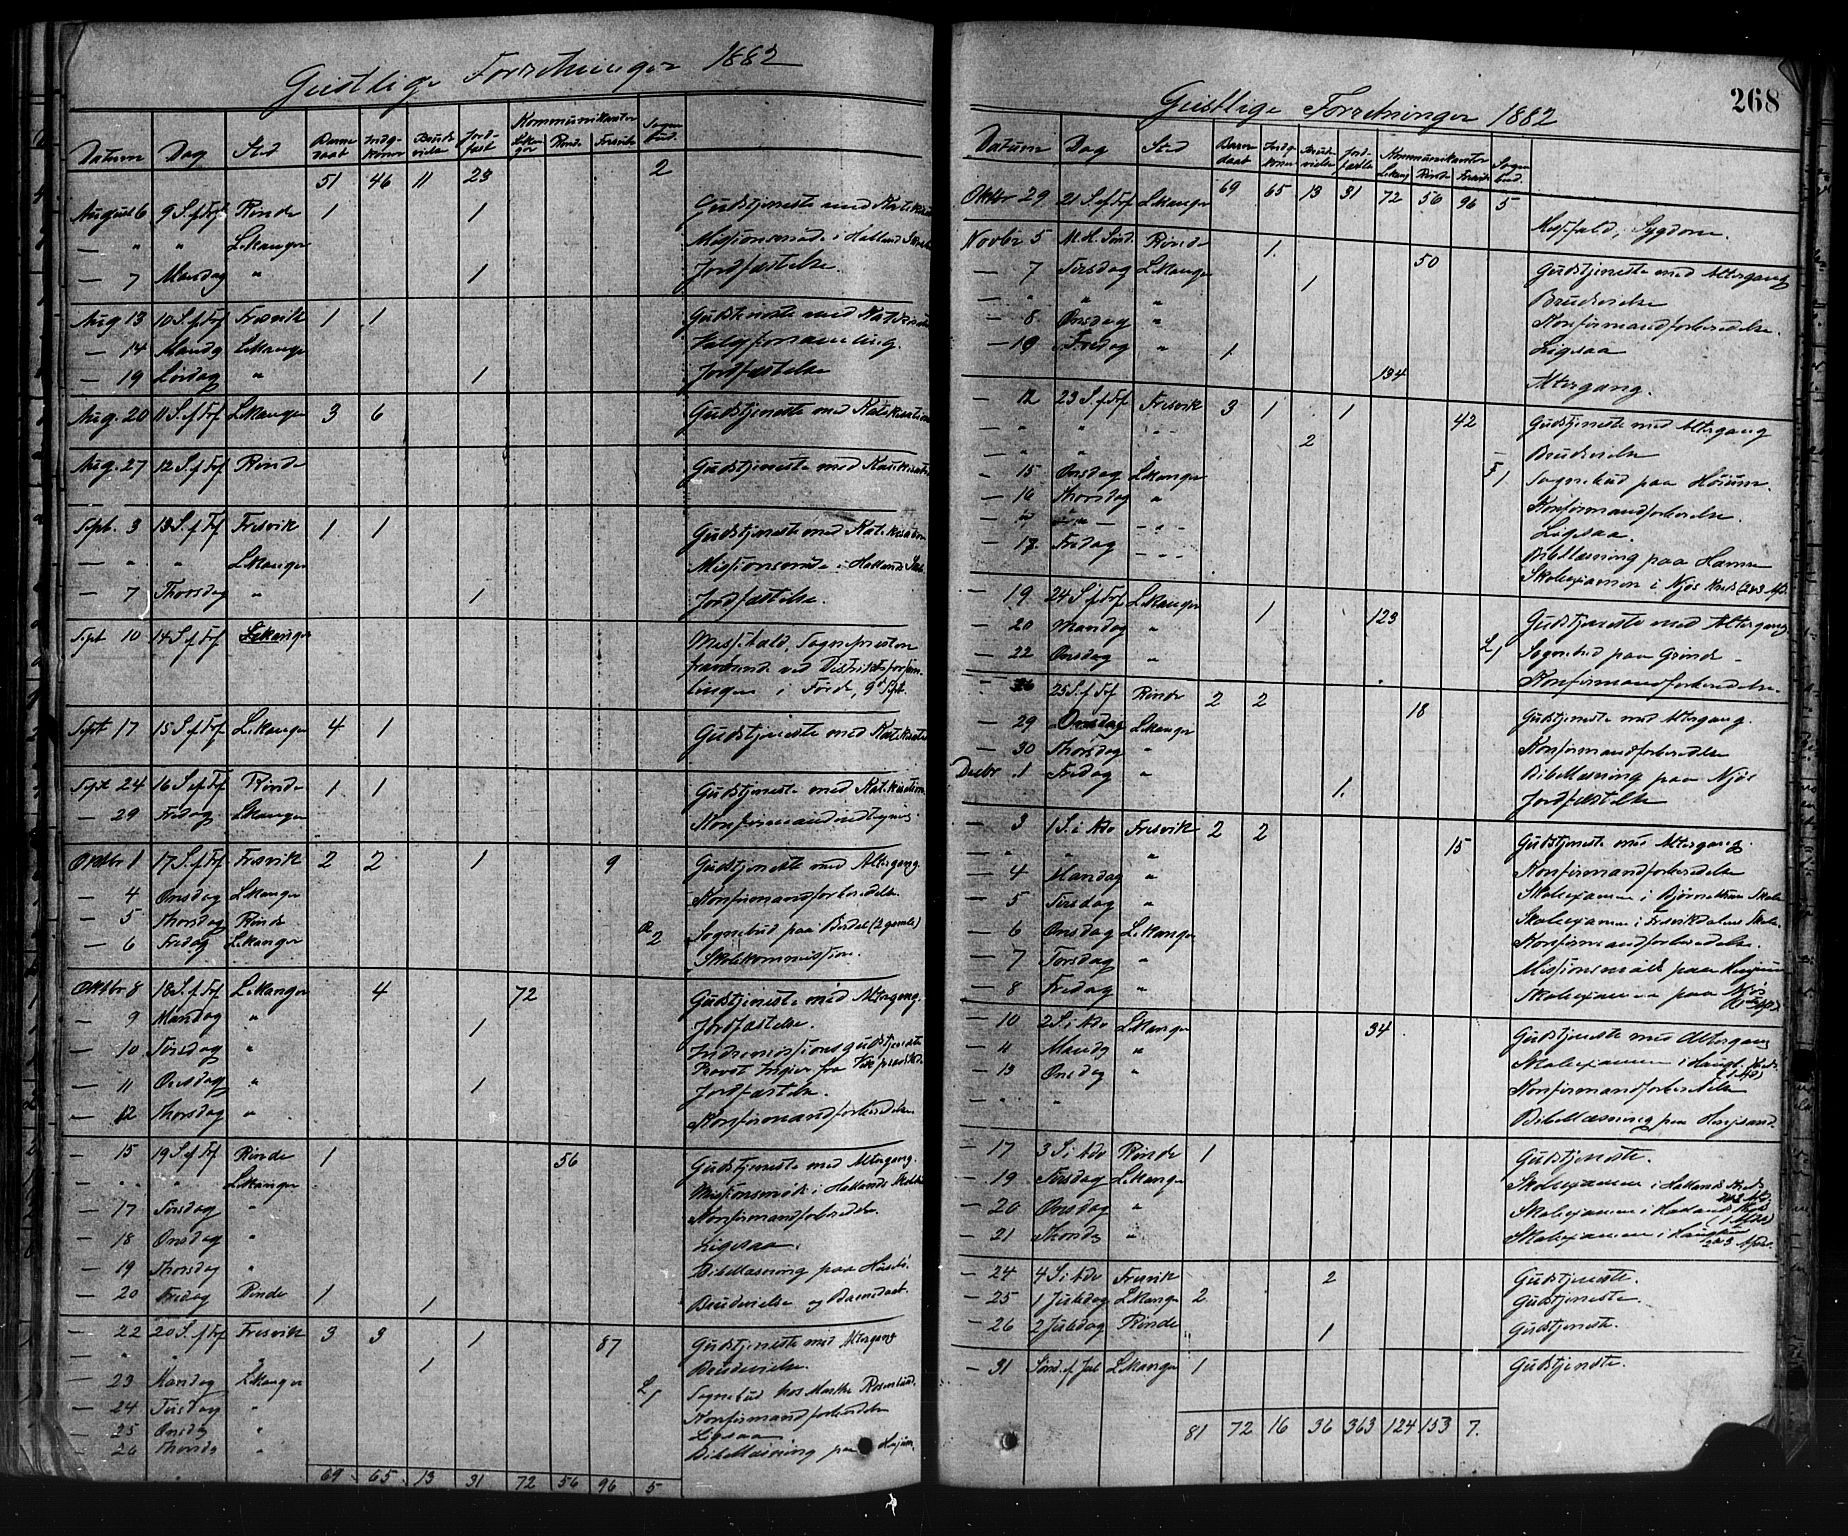 Geistlige Forretninger 1882
Datum Dag Sted Barne daab Indg. koner Brude vielse Jord fæst Kommunikanter Lekanger Rinde Fresvik Sogne bud
51 46 11 23 2
August 6 9 S. ef Trf Rinde 1 1 Gudstjeneste med
— " " Lekanger Missionsmøde i Hallands
— 7 Mandag " 1 Jordfæstelse.
Aug 13 10 S. ef Trf Fresvik 1 1 Gudstjeneste med
— 14 Mandg Lekanger Valgforsamling.
— 19 Lørdag " 1 Jordfæstelse
Aug. 20 11 S. ef Trf Lekanger 3 6 Gudstjeneste med Katekisation
Aug. 27 12 S. ef Trf Rinde Gudstjeneste med Katekisation
Sept. 3 13 S. ef Trf Fresvik 1 1 Gudstjeneste med Katekisation
— " " Lekanger Missionsmøde i Hallands
— 7 Thorsdag " 1 Jordfæstelse.
Sept 10 14 S. ef Trf Lekanger Messefald, Sognepresten
fraværende ved Distriktsforsam-
lingen i Førde, 9 Sept.
Sept 17 15 S. ef Trf Lekanger 4 1 Gudstjeneste med Katekisation
Sept 24 16 S. ef Trf Rinde 1 1 Gudstjeneste med Katekisation
— 29 Fredag Lekanger
Oktbr 1 17 S. ef Trf Fresvik 2 2 1 9 Gudstjeneste med Altergang.
— 4 Onsdag Lekanger Konfirmandforberedelse
— 5 Thorsdag Rinde 2 Sognebud paa (2 gamle)
— 6 Fredag Lekanger Skolekommission.
Oktbr 8 18 S. ef Trf Lekanger 4 72 Gudstjeneste med Altergang.
— 9 Mandag " 1 Jordfæstelse.
— 10 Tirsdag " Indremissionsgudstjeneste
Provst fra
— 11 Onsdag " 1 Jordfæstelse.
— 12 Thorsdag " Konfirmandforberedelse
— 15 19 S. ef Trf Rinde 1 56 Gudstjeneste med Altergang.
" " Lekanger Missionsmøde i Hallands
— 17 Tirsdag " Konfirmandforberedelse
— 18 Onsdag " Ligsaa.
— 19 Thorsdag " Bibellæsning paa
— 20 Fredag Rinde 1 1 Brudevielse og Barnedaab.
— 22 20 S. ef Trf Fresvik 3 3 1 87 Gudstjeneste med Altergang
— " " " 1 Brudevielse.
— 23 Mandag Lekanger L 1 Sognebud hos Marthe
— 24 Tirsdag " Konfirmandforberedelse
— 25 Onsdag " Ligsaa
— 26 Thorsdg " Bibellæsning paa
69 65 13 31 72 56 96 5
268
Geistlige Forretninger 1882
Datum Dag Sted Barne daab Indg. koner Brud vielse Jord fæstelse Kommunikanter Lekang Rinde Fresvik Sogne bud.
Oktbr 29 21 S. ef Trf Lekanger 69 65 13 31 72 56 96 5 Messefald, Sygdom.
Novbr 5 Rinde 1. 50 Gudstjeneste med Altergang
— 7 Tirsdag Lekanger 1 Brudevielse
— " " " Konfirmandforberedelse.
— 8 Onsdag " Ligsaa
— 10 Fredag " 1 134 Altergang.
— 12 23 S. ef Trf Fresvik 3 1 1 42 Gudstjeneste med Altergang
— " " 2 Brudevielse
— " " F 1 Sognebud paa
— 15 Onsdag Lekanger Konfirmandforberedelse.
— 16 Thorsdag " Ligsaa.
Bibellæsning paa Hamre
— 17 Fredag Skoleexamen i Njøs
— 19 24 S. ef Trf Lekanger 1 123 Gudstjeneste med Altergang
— 20 Mandag " L 1 Sognebud paa Grinde
— 22 Onsdag " Konfirmandforberedelse.
— 26 25 S. ef Trf Rinde 2 2 18 Gudstjeneste med Altergang.
— 29 Onsdag Lekanger Konfirmandforberedelse
— 30 Thorsdag " Bibellæsning paa Njøs
Decbr 1 Fredag " 1. Jordfæstelse
— 3 1 S. i Adv Fresvik 2 2 15 Gudstjeneste med Altergang.
— " " " Konfirmandforberedelse
— 4 Mandag " Skoleexamen i
— 5 Tirsdag " Skoleexamen i Fresvikdalens Skole
— 6 Onsdag Lekanger Konfirmandforberedelse.
— 7 Torsdag " Missionsmøde paa
— 8 Fredag " Skoleexamen paa Njøs
— 10 2 S. i Adv Lekanger 34 Gudstjeneste med Altergang
— 11 Mandg " Skoleexamen i
— 13 Onsdag " Konfirmandforberedelse
— " " Bibellæsning paa
— 17 3 S. i Adv Rinde 1 Gudstjeneste.
— 19 Tirsdag Lekanger Skoleexamen i Hallands
— 20 Onsdag " Skoleexamen i
— 21 Thorsdg " Skoleexamen i
— 24 4 S. i Adv Fresvik 2 Gudstjeneste.
— 25 1 Juledag Lekanger 2 Gudstjeneste.
— 26 2 Juledag Rinde " 1 Gudstjeneste
— 31 Sønd. ef Jul Lekanger 1 Gudstjeneste.
81 72 16 36 363 124 153 7.